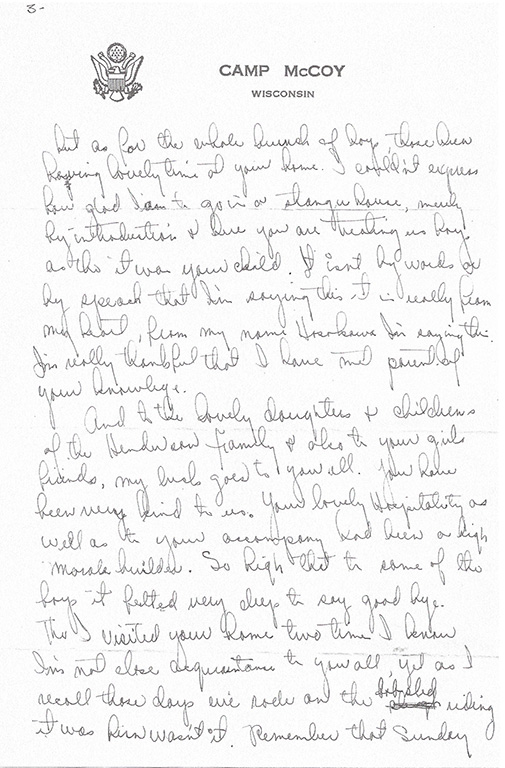 3-
CAMP McCOY
WISCONSIN
but as for the whole bunch of boys those been
having lovely time at your home. I couldn't express
how glad I am to go in a stranger house, merely
by introduction & here you are treating us boys
as tho it was your child. It isn't by words or
by speech that I'm saying this it is really from
my heart, from my name Hosokawa I'm saying this.
I'm really thankful that I have met parents of
your knowlege.
And to the lovely daughters & childrens
of the Henderson Family & also to your girls
friends, my goes to you all. You have
been very kind to us. Your lovely Hospitality as
well as to your accompany had been a high
morale builder. So high that to some of the
boys it felted very deep to say good bye.
Tho I visited your home two time I know
I'm not close acquaintance to you all, yet as I
recall those days we rode on the bob sled riding
it was fun wasn't it. Remember that Sunday